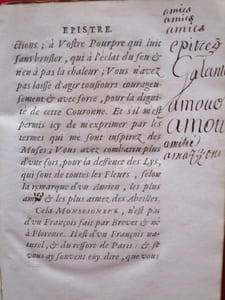 EPISTRE.
ctions; à Vostre Pourpre qui luit
sans brusler, qui à l'éclat du feu &
n'en à pas la chaleur; Vous n'avez
pas laissé d'agir tousiours courageu-
sement & avec force, pour la digni-
té de cette Couronne. Et s'il m'est
permis icy de m'exprimer par les
termes qui me sont inspirez des
Muses; Vous avez combattu plus
d'une fois, pour la deffence des Lys,
qui sont de toutes les Fleurs, selon
la remarque d'un Ancien, les plus
amies & les plus aimez des Abeilles.
Cela MONSEIGNEVR, n'est pas
d'un François fait par Brevet & né
à Florence. Il est d'un François na-
turel, & du ressort de Paris: & ie
vous ay souvent ouy dire, que vous
amies
amies
amies
epitrez
Galant
amour
amou
amitié
amazzone